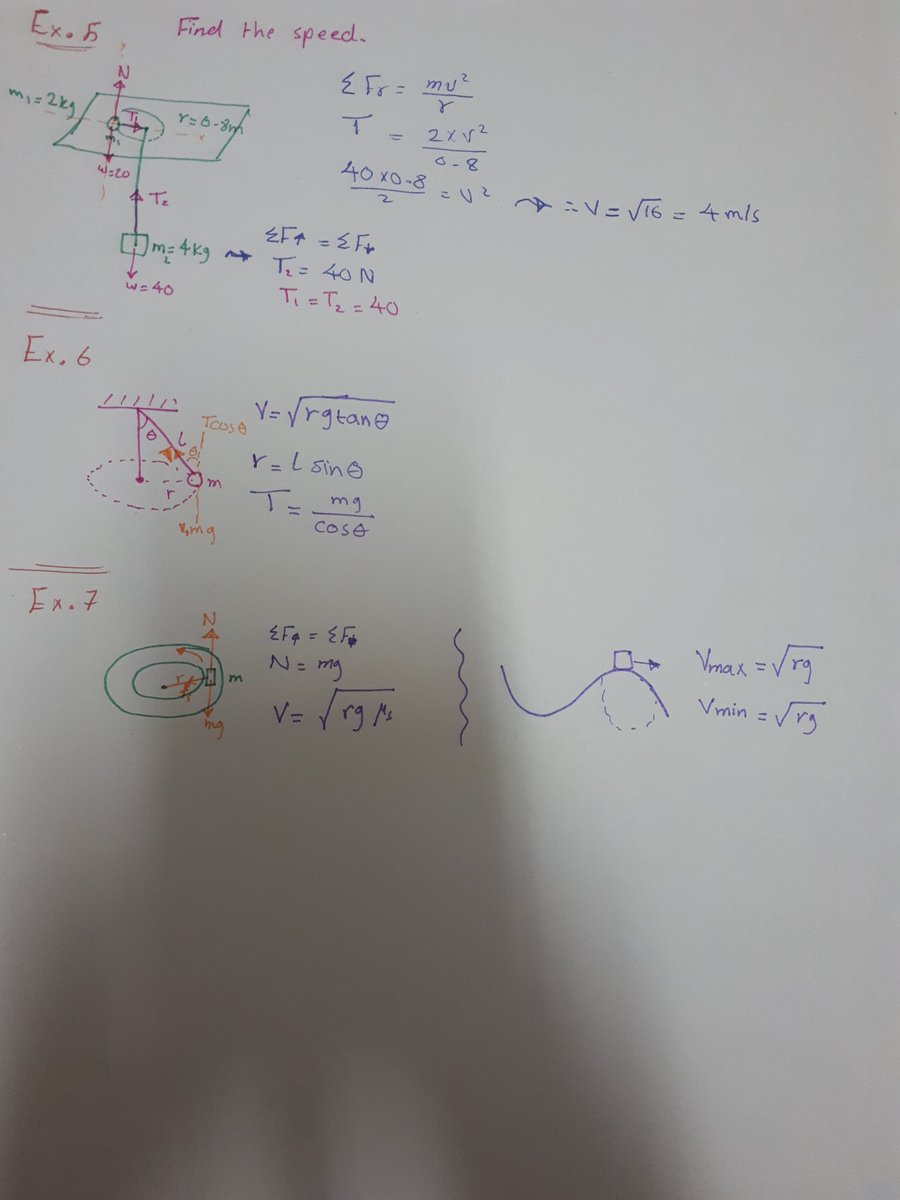 Ex. 5 Find the speed.
N
m₁ = 2kg
T₁
r = 0-8m
m₁
w=20
T₂
m₂= 4kg
w=40
ΣFr = mv²/r
T = 2×v²/0-8
40×0-8/2 = v² ⇝ ∴ V = √16 = 4 m/s
ΣF↑ = ΣF↓
T₂ = 40 N
T₁ = T₂ = 40
Ex. 6
θ
l
Tcosθ
θ
r
m
mg
V = √rg tanθ
r = l sinθ
T = mg/cosθ
Ex. 7
N
r
m
mg
ΣF↑ = ΣF↓
N = mg
V = √rg μs
Vmax = √rg
Vmin = √rg